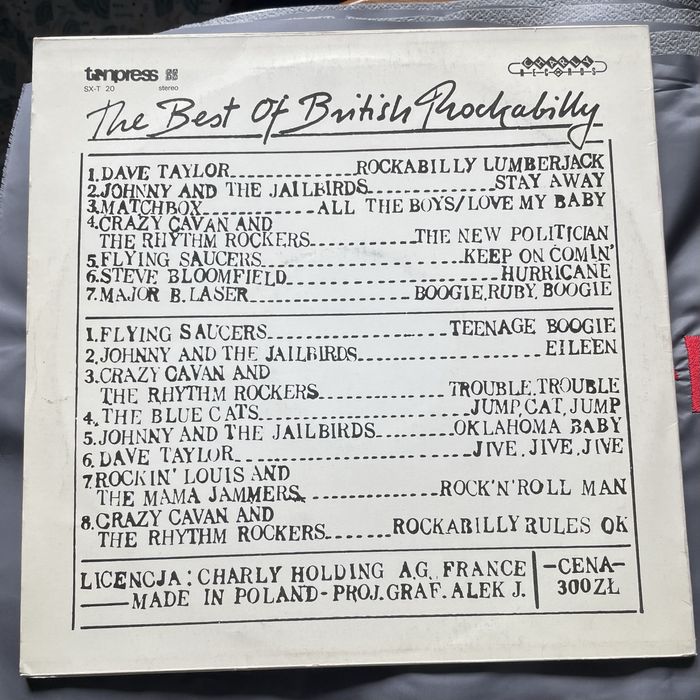 tonpress
SX-T 20 stereo
CHARLY
RECORDS
The Best Of British Rockabilly
1. DAVE TAYLOR ROCKABILLY LUMBERJACK
2. JOHNNY AND THE JAILBIRDS STAY AWAY
3. MATCHBOX ALL THE BOYS/LOVE MY BABY
4. CRAZY CAVAN AND
THE RHYTHM ROCKERS THE NEW POLITICIAN
5. FLYING SAUCERS KEEP ON COMIN'
6. STEVE BLOOMFIELD HURRICANE
7. MAJOR B. LASER BOOGIE, RUBY, BOOGIE
1. FLYING SAUCERS TEENAGE BOOGIE
2. JOHNNY AND THE JAILBIRDS EILEEN
3. CRAZY CAVAN AND
THE RHYTHM ROCKERS TROUBLE, TROUBLE
4. THE BLUE CATS JUMP, CAT, JUMP
5. JOHNNY AND THE JAILBIRDS OKLAHOMA BABY
6. DAVE TAYLOR JIVE, JIVE, JIVE
7. ROCKIN' LOUIS AND
THE MAMA JAMMERS ROCK'N'ROLL MAN
8. CRAZY CAVAN AND
THE RHYTHM ROCKERS ROCKABILLY RULES OK
LICENCJA: CHARLY HOLDING A.G. FRANCE
MADE IN POLAND - PROJ. GRAF. ALEK J.
-CENA-
300 ZŁ